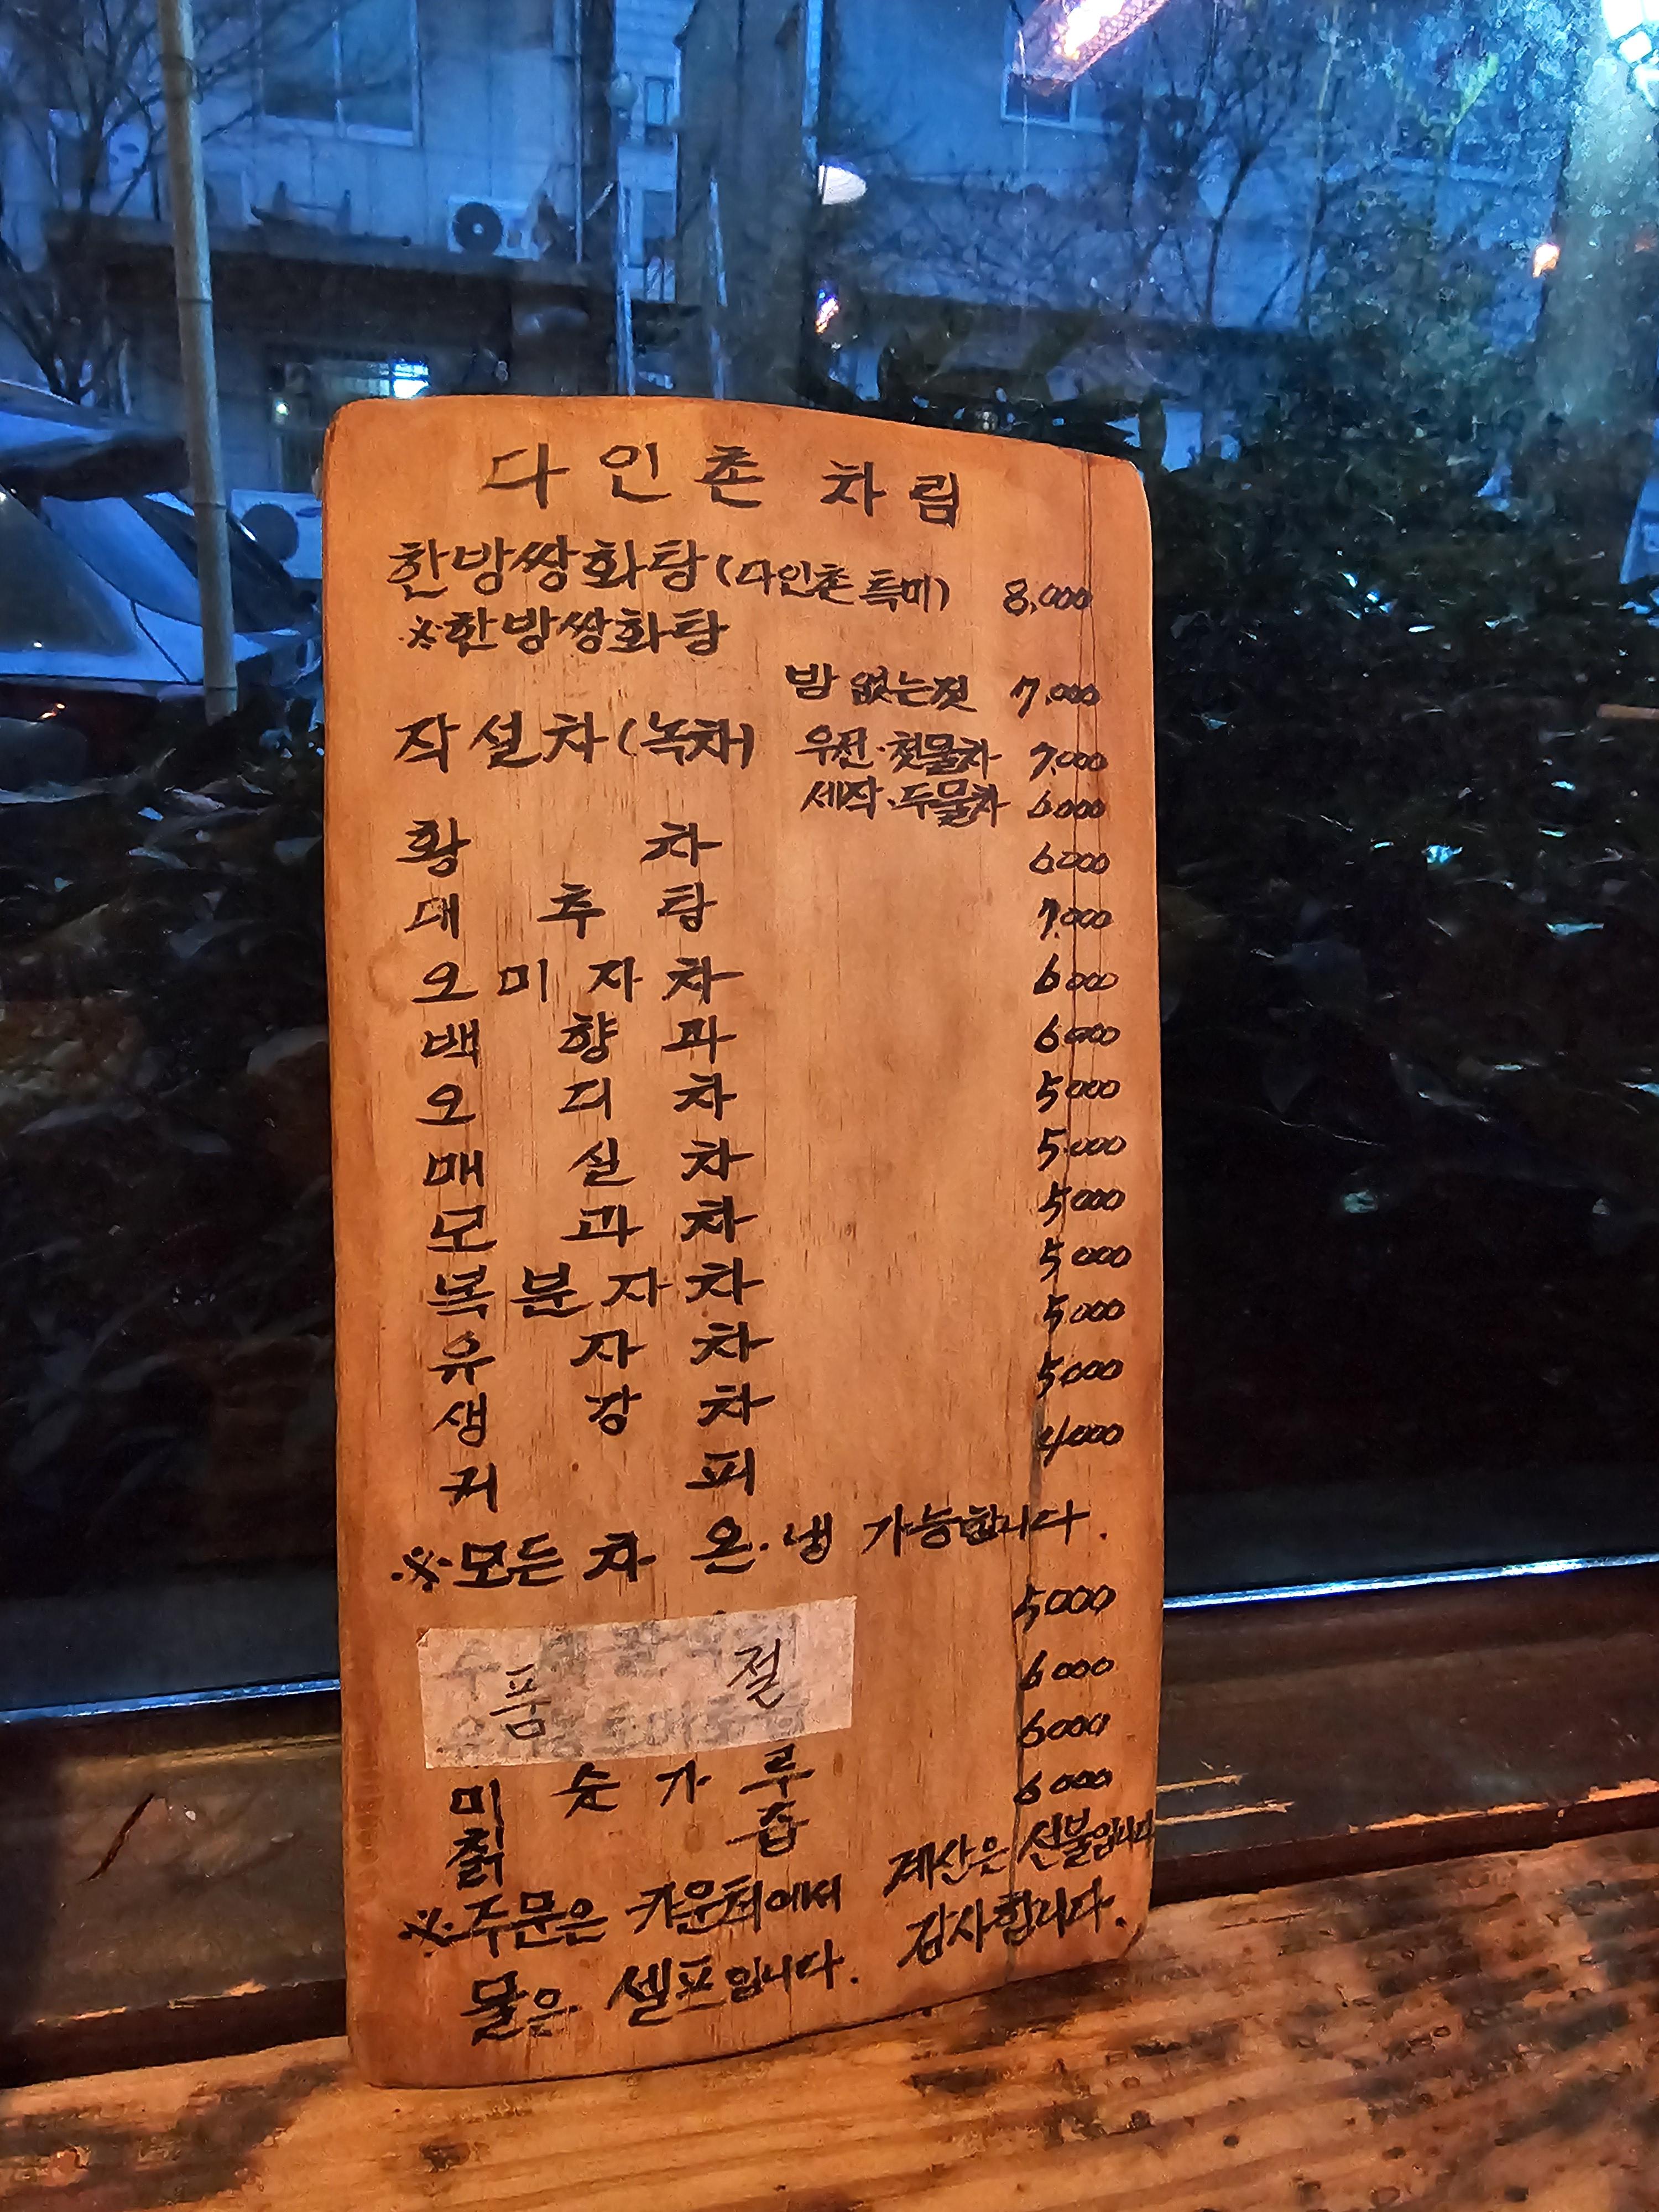 다인촌 차림
한방쌍화탕(다인촌 특미) 8,000
※한방쌍화탕
밤 없는것 7,000
작설차(녹차) 우전·첫물차 7,000
세작·두물차 6,000
황차 6,000
대추탕 7,000
오미자차 6,000
백향과 6,000
오디차 5,000
매실차 5,000
모과차 5,000
복분자차 5,000
유자차 5,000
생강차 5,000
커피 4,000
※모든 차 온·냉 가능합니다.
5,000
품절
6,000
미숫가루 6,000
칡즙 6,000
※주문은 카운터에서 계산은 선불입니다
물은 셀프입니다. 감사합니다.